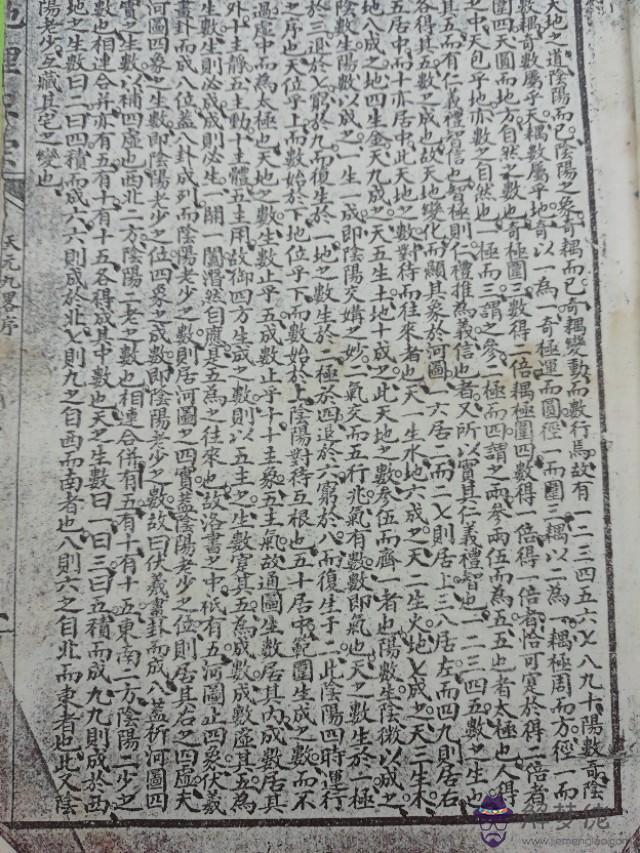 天地之道陰陽而已陰陽之象奇耦而已奇耦變動而數行焉故有一二三四五六七八九十陽數奇陰
數耦奇數屬乎天耦數屬乎地奇以一為一奇極運而圓徑一而圍三耦以二為一耦極周而方徑一而
圍四天圓而地方自然之數也奇極圍三數得三倍耦極圍四數得一倍得一倍者恰可寔於得二倍者
之中天包乎地亦數之自然也一極而三謂之參二極而四謂之兩參兩伍而為五五也者太極也人得
其五而有仁義禮智信也智極則仁禮推為義信也者又所以實其仁義禮智也一二三四五數之生也
各得其五數之成也故天地變化而顯其象於河圖一六居下二七則居上三八居左而四九則居右
五居中而十亦居中此天地之數對待而往來者也天一生水地六成之天二生火地七成之天三生木
地八成之地四生金天九成之天五生土地十成之此天地之數參伍而齊一者也陽數生陰數以成之
陰數生陽數以成之一生一成即陰陽交媾之妙二氣交而五行兆氣有數數即氣也天之數生於一極
於三退於七窮於九而復生於一地之數生於二極於四退於六窮於八而復生于二此陰陽四時運行
之序也天位乎上而數始於下地位乎下而數始於上陰陽對待互根也五十居中範圍生成之數而不
過虛中而為太極也天地之數生數止乎五成數止乎十十主象五主氣故通圖生數居其內成數居其
外十主靜五主動十主體五主用故御四方生成之數則以五主之生數寔其五為成數成數虛其五為
生數生則必成成則必生一闔一闢潛然自應是五為之往來也故洛書之中祇有五河圖止四象伏羲
畫卦而成八位蓋八卦成列而陰陽老少之數則居河圖之四實蓋陰陽老少之位則居其右之四虛夫
河圖四象之生數即陰陽老少之位四象之成數即陰陽老少之數故曰伏羲畫卦而成八蓋析河圖四
實之生數以補四虛也西北二方陰陽二老之數也相連合併有五有十有十五東南二方陰陽二少之
數也相連合并亦有五有十有十五各得成其中數也天之生數曰一曰三曰五積而成九九則成於西
地之生數曰二曰四積而成六六則成於北七則九之自西而南者也八則六之自北而東者也此又陰
陽老少互藏其宅之變也
天元九畧序
www.jiemengliao.com